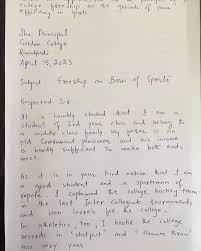 college freeship on the grounds of your
efficiency in sports
The Principal
Gordon College
Rawalpindi
April 15, 2023
Subject Freeship on Basis of Sports
Respected Sir
It is humbly stated that I am a
student of 2nd year class and belong to
a middle class family. My father is an
old Government pensioner and his income
is hardly sufficient to make both ends
meet.
As it is in your kind notice that I am
a good student and a sportsman of
repute. I captained the college hockey team
in the last Inter Collegiate tournaments
and won laurels for the college.
In athletics too, I broke the college
records in "shotput" and "Hammer Throw"
this very year